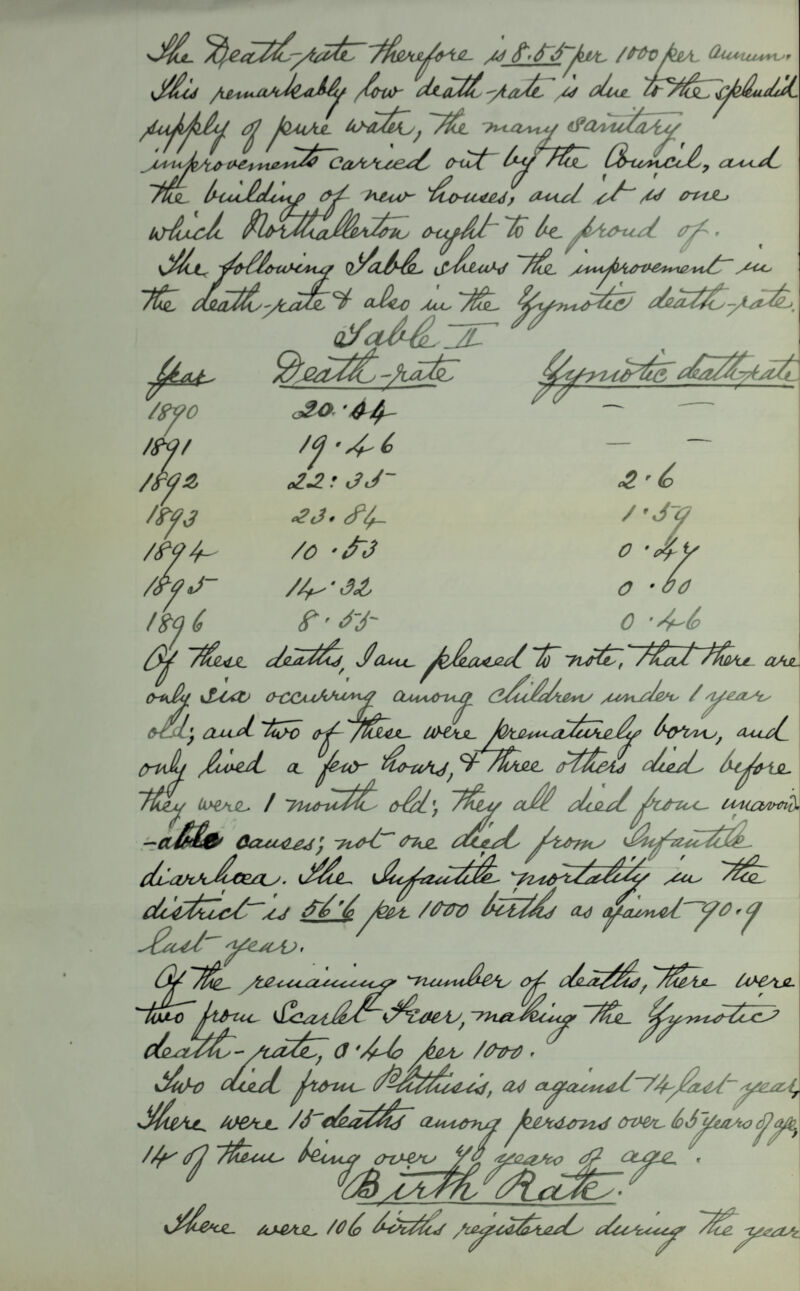 The Death-rate therefore is 8.55 per 1000 per Annum.
This remarkably low death-rate is due to the splendid
supply of pure water, the many Sanitary
improvements carried out by the Council, and
the building of new houses, and it is one
which Northallerton ought to be proud of.
The following Table Shews the improvement in
the death-rate & also in the Zymotic death-rate.
Table II
Year Death-rate Zymotic death-rate
1890 20.44 — —
1891 19.46 — —
1892 22.35 2.6
1893 23.84 1.59
1894 10.53 0.
1895 14.32 0.00
1896 8.55 0.46
Of these deaths, I am pleased to note, that there are
only Six occurring among children under 1 year
old; and two of these were prematurely born, and
only lived a few hours, & three others died before
they were 1 month old; they all died from unavoid
-able causes; not one died from Infantile
diarrhoea. The Infantile mortality in the
district is 56.6 per 1000 births as against 90.9
last year.
Of the remaining number of deaths, there were
two from Scarlet Fever, making the Zymotic
death-rate, 0.46 per 1000.
Two died from Phthisis, as against 14 last year,
There were 15 deaths among persons over 65 years of age,
14 of them being over 70 years of age.
Birth Rate.
There were 106 births registered during the year